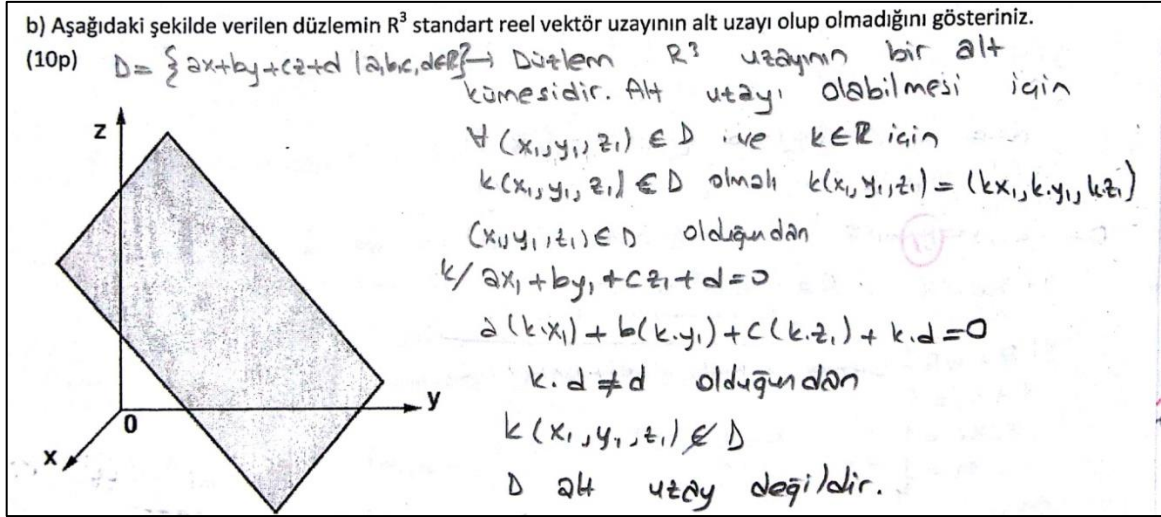 b) Aşağıdaki şekilde verilen düzlemin R³ standart reel vektör uzayının alt uzayı olup olmadığını gösteriniz.
(10p) D= {ax+by+cz+d |a,b,c,d∈R} → Düzlem R³ uzayının bir alt
kümesidir. Alt uzayı olabilmesi için
∀ (x₁,y₁,z₁) ∈ D ve k∈R için
k(x₁,y₁,z₁) ∈ D olmalı k(x₁,y₁,z₁) = (kx₁,k.y₁,kz₁)
(x₁,y₁,z₁)∈D olduğundan
k/ ax₁+by₁+cz₁+d=0
a(k.x₁)+b(k.y₁)+c(k.z₁)+k.d=0
k.d≠d olduğundan
k(x₁,y₁,z₁)∉D
D alt uzay değildir.
z
y
0
x